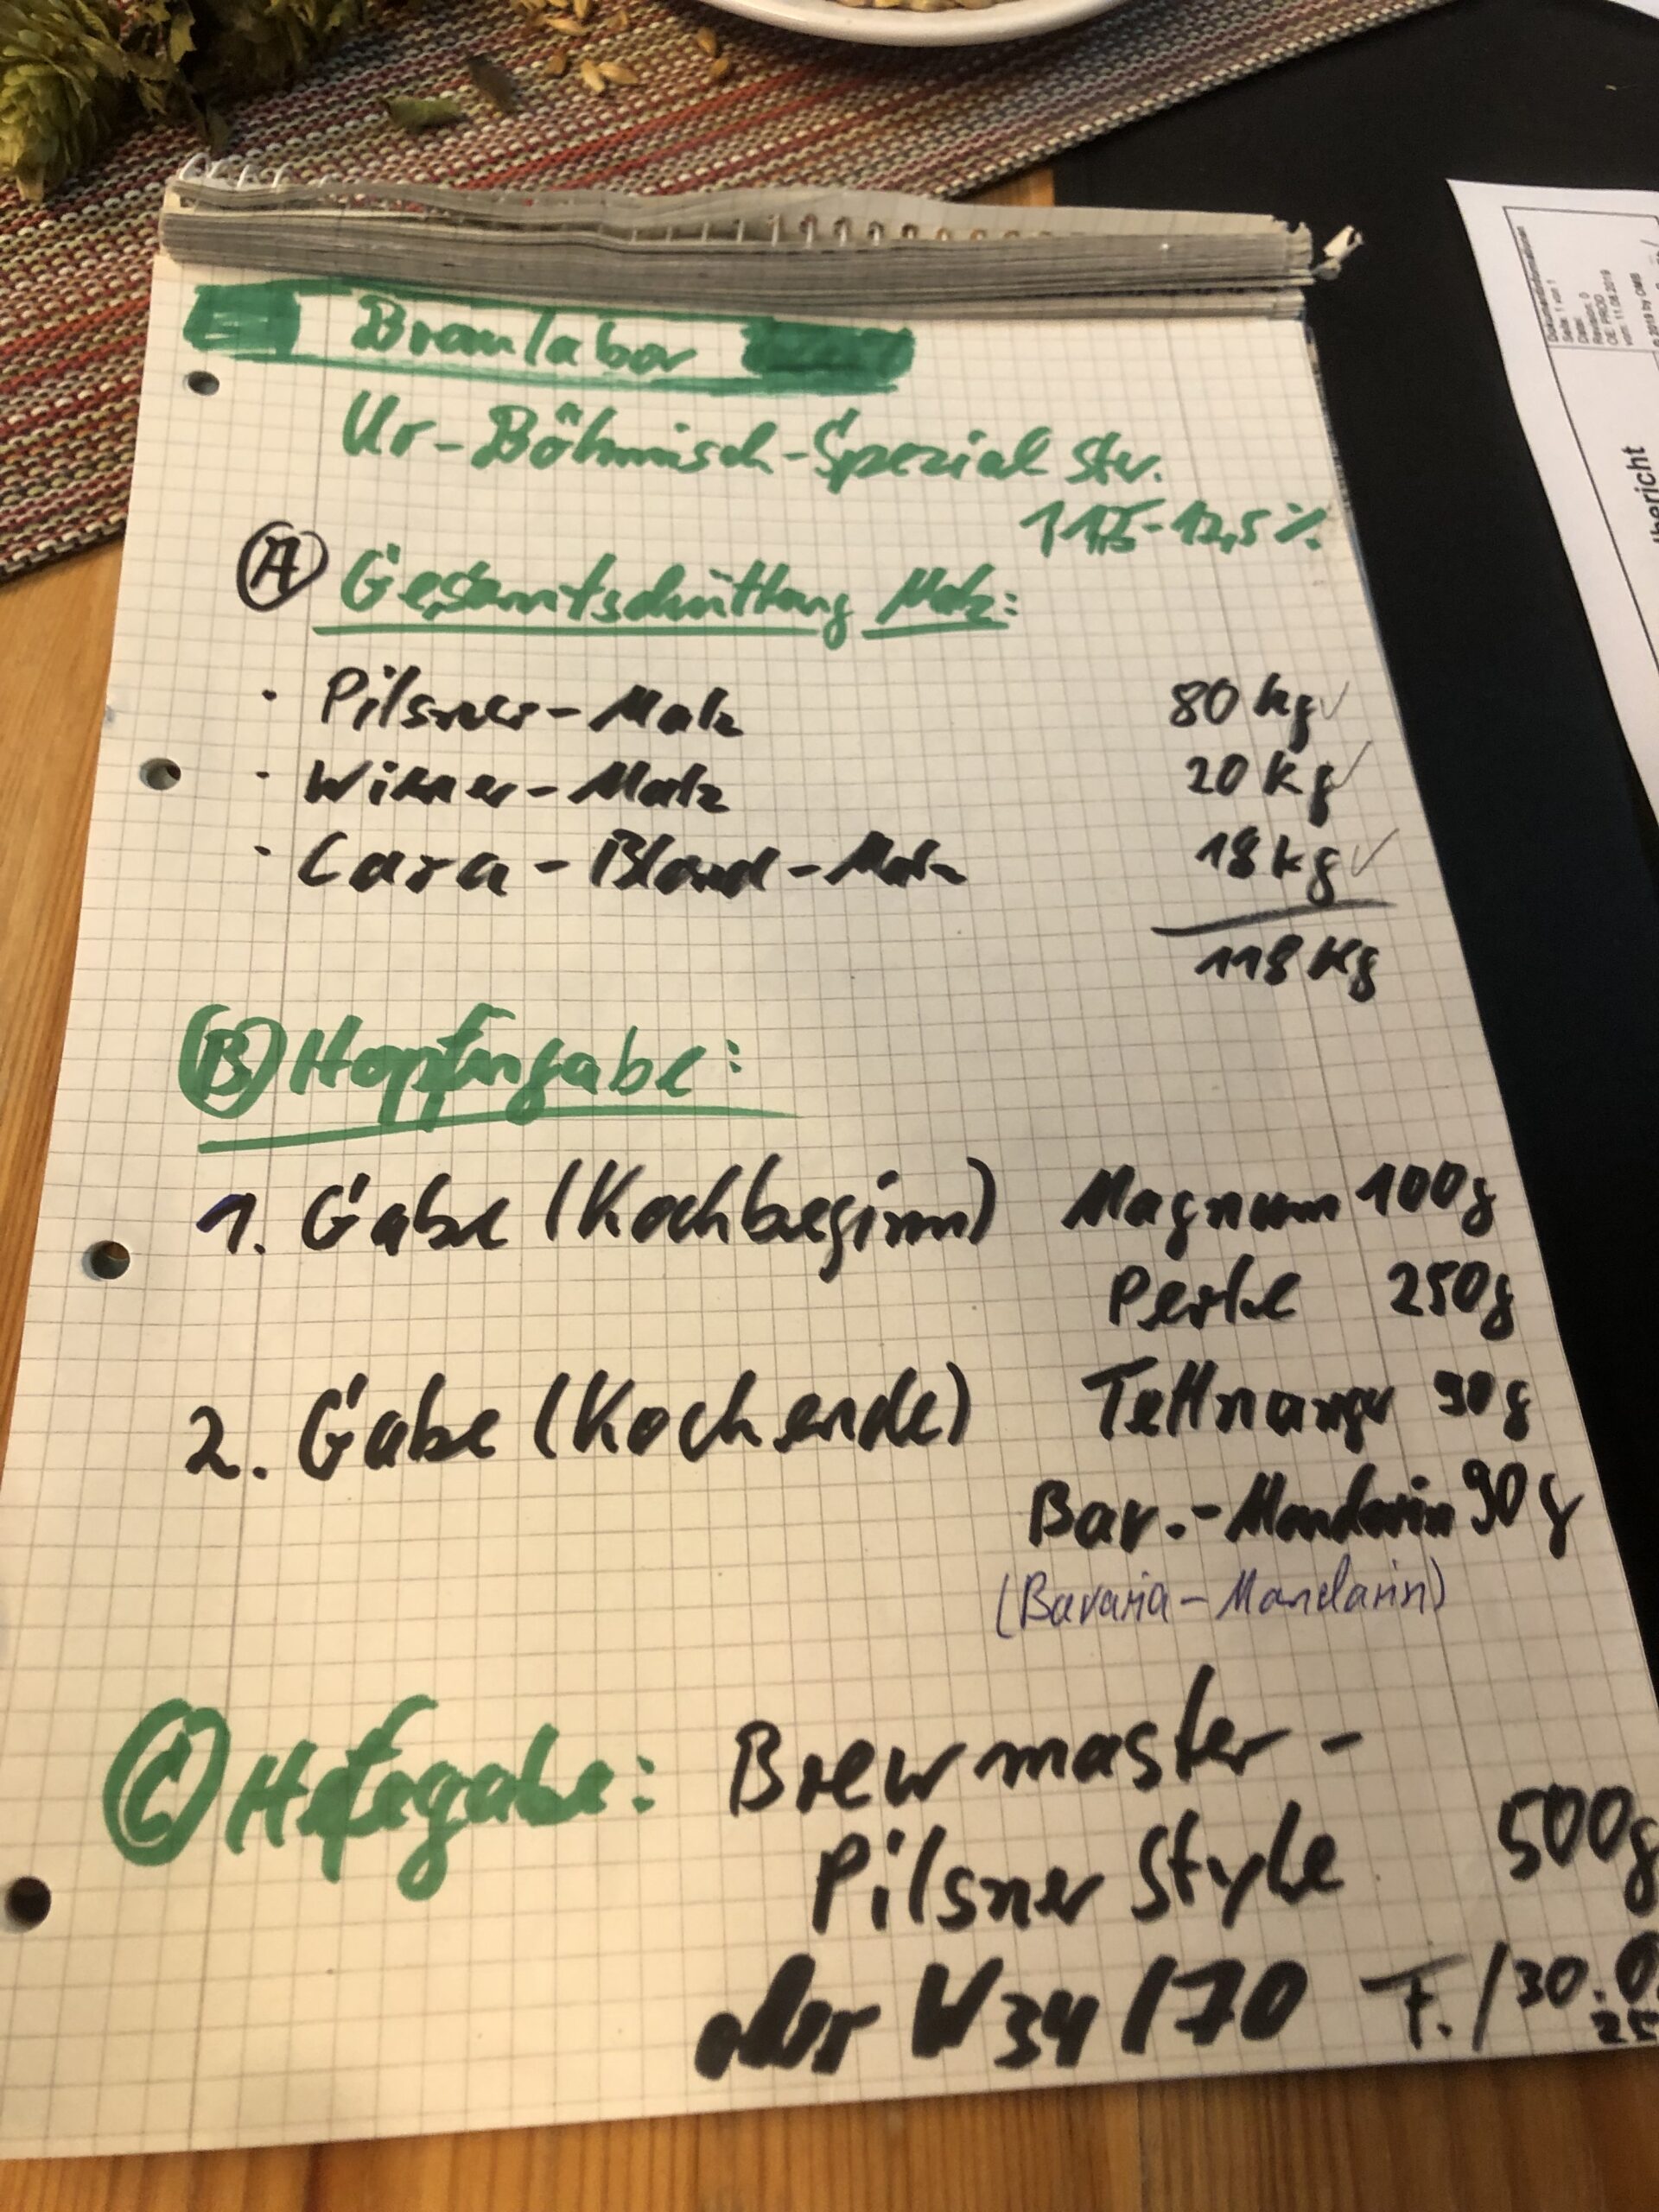 Braulabor
Ur-Böhmisch-Spezial Stw.
11,5-12,5%
A Gesamtschüttung Malz:
· Pilsner-Malz 80 kg ✓
· Wiener-Malz 20 kg ✓
· Cara-Blond-Malz 18 kg ✓
118 kg
B Hopfengabe:
1. Gabe (Kochbeginn) Magnum 100g
Perle 250g
2. Gabe (Kochende) Tettnanger 90g
Bav.-Mandarin 90g
(Bavaria-Mandarin)
C Hefegabe: Brewmaster-
Pilsner Style 500g
oder W34/70 F./30.0
25
Dokumentinformationen
Seite: 1 von 1
Datei:
Revision: 0
OE: PROD
vom: 11.08.2019